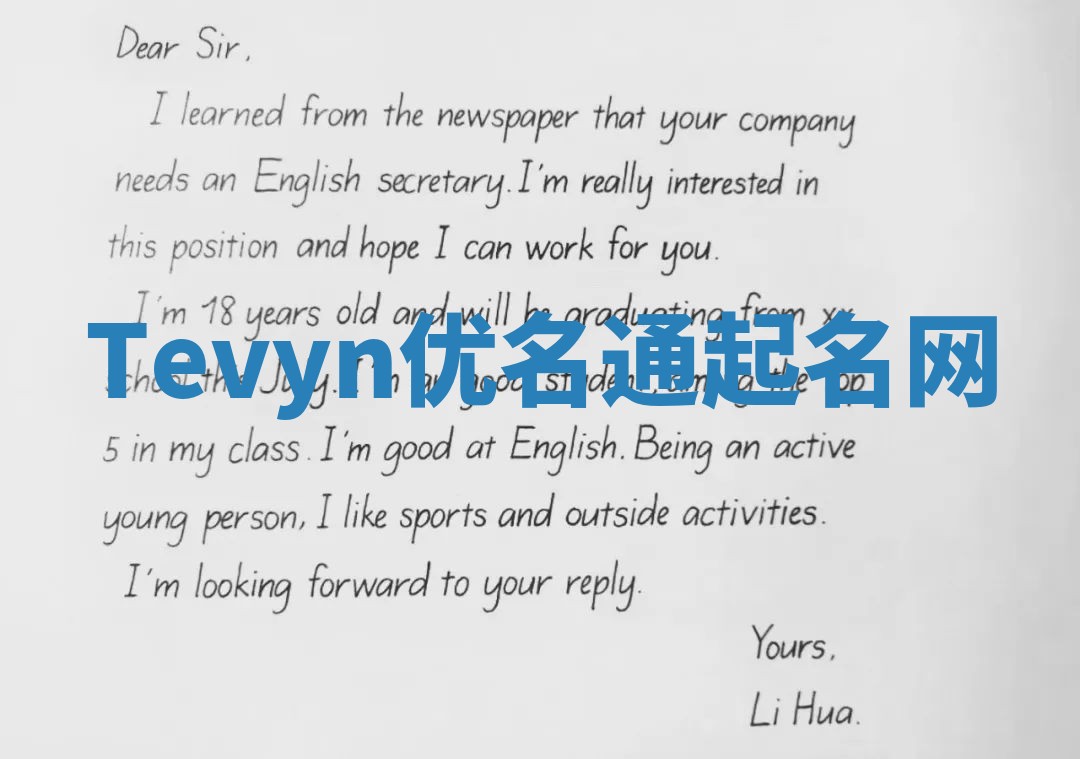 Dear Sir,
I learned from the newspaper that your company
needs an English secretary. I'm really interested in
this position and hope I can work for you.
I'm 18 years old and will be graduating from xx
Tevyn优名通起名网
school this July. I'm a good student, among the top
5 in my class. I'm good at English. Being an active
young person, I like sports and outside activities.
I'm looking forward to your reply.
Yours,
Li Hua.